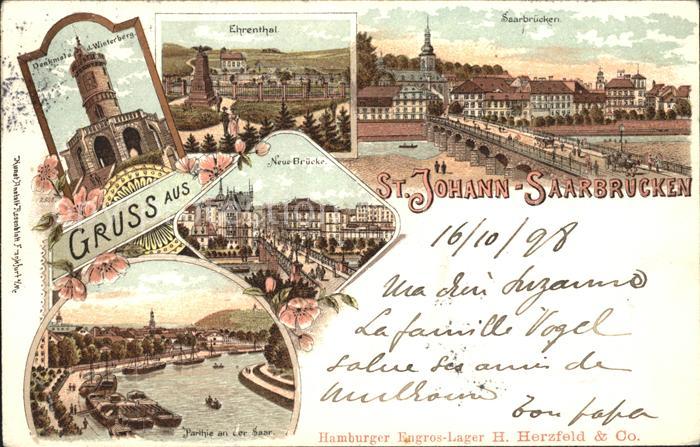 Denkmal a. d. Winterberg.
Ehrenthal.
Saarbrücken.
Neue Brücke.
GRUSS AUS
ST. JOHANN-SAARBRÜCKEN
16/10/98
Ma Suzanne
La famille Vogel
salue ses amis de
Ton papa
Parthie an der Saar.
Hamburger Engros-Lager H. Herzfeld & Co.